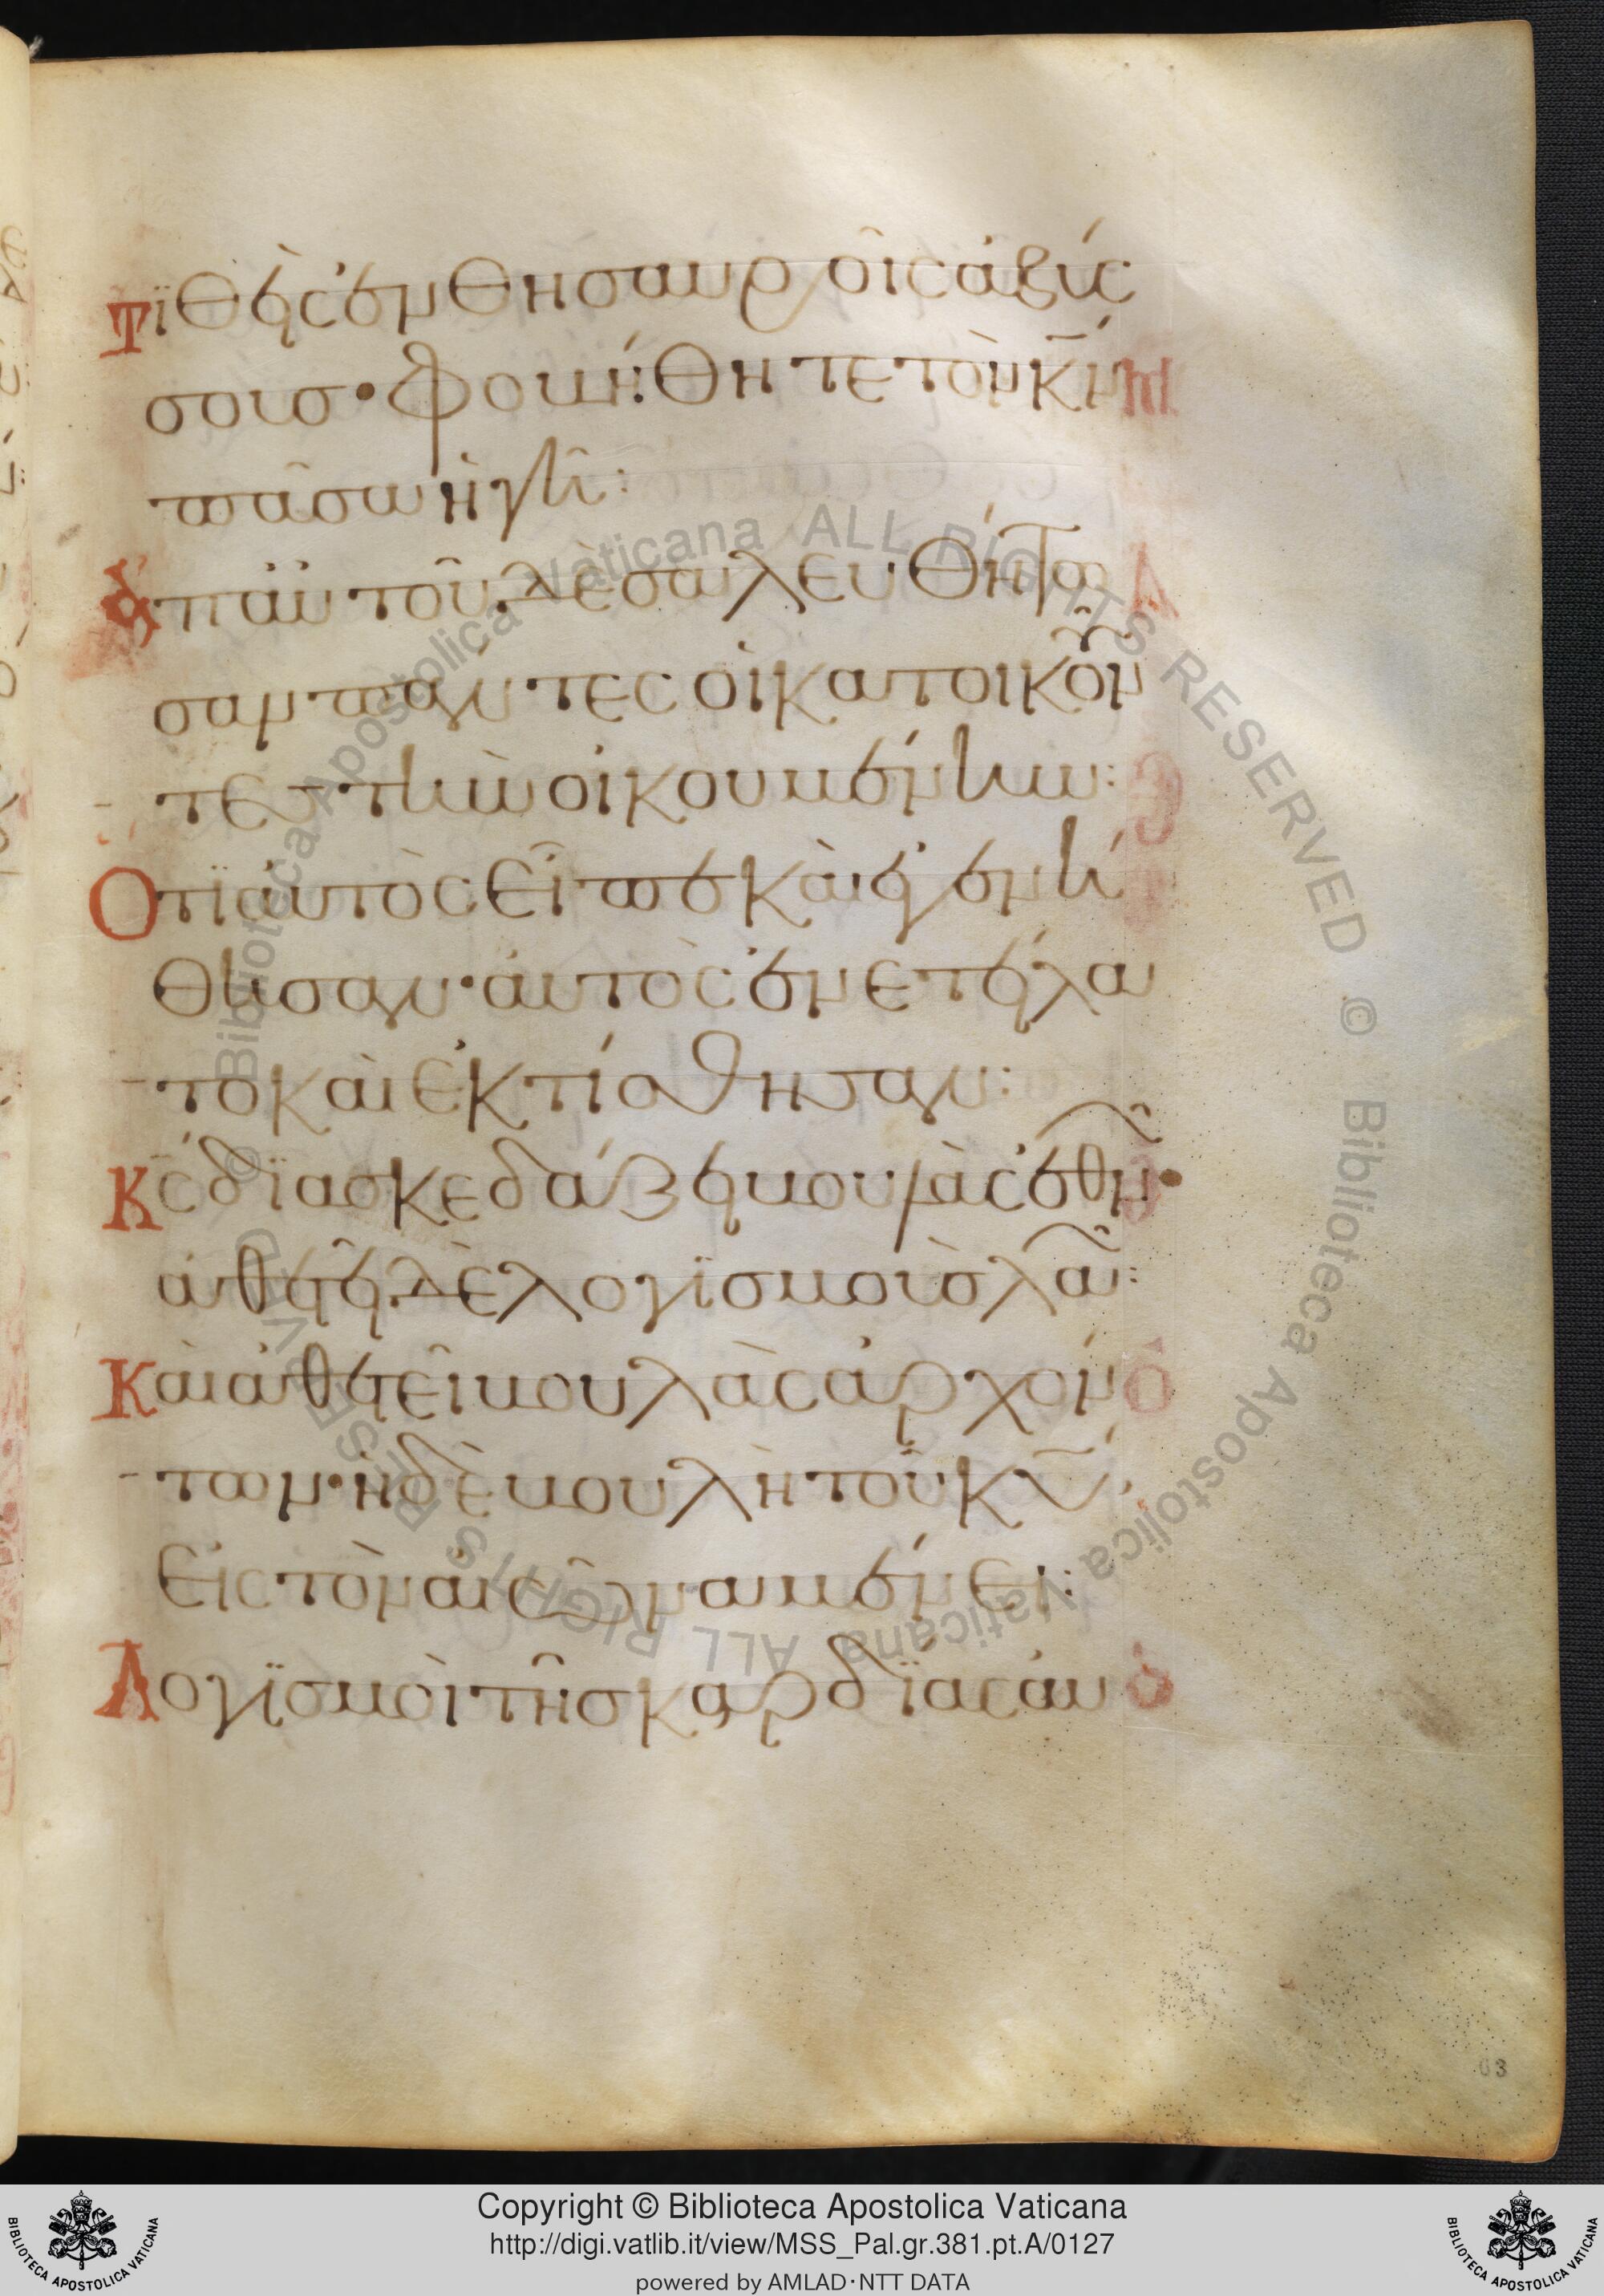 Τϊθεὶς ἐν θησαυροῖς ἀβύσ
σους· φοβηθήτε τὸν κ̅ν̅
πᾶσα ἡ γῆ:
Ἀπ αὐτοῦ δὲ σαλευθήτω
σαν πάντες οἱ κατοικοῦν
τες τὴν οἰκουμένην:
Ὅτϊ αὐτὸς εἶπε καὶ ἐγενή
θησαν· αὐτὸς ἐνετείλα
το καὶ ἐκτίσθησαν:
Κ̅ς̅ δϊασκεδάζει βουλὰς ἐθνῶν·
ἀθετεῖ δὲ λογϊσμοὺς λαῶν:
Καὶ ἀθετεῖ βουλὰς ἀρχόν
των· ἡ δὲ βουλὴ τοῦ κ̅υ̅
εἰς τὸν αἰῶνα μένει:
Λογϊσμοὶ τῆς καρδϊας αὐ
63
© Biblioteca Apostolica Vaticana ALL RIGHTS RESERVED © Biblioteca Apostolica Vaticana ALL RIGHTS RESERVED
Copyright © Biblioteca Apostolica Vaticana
http://digi.vatlib.it/view/MSS_Pal.gr.381.pt.A/0127
powered by AMLAD·NTT DATA
BIBLIOTECA APOSTOLICA VATICANA
BIBLIOTECA APOSTOLICA VATICANA